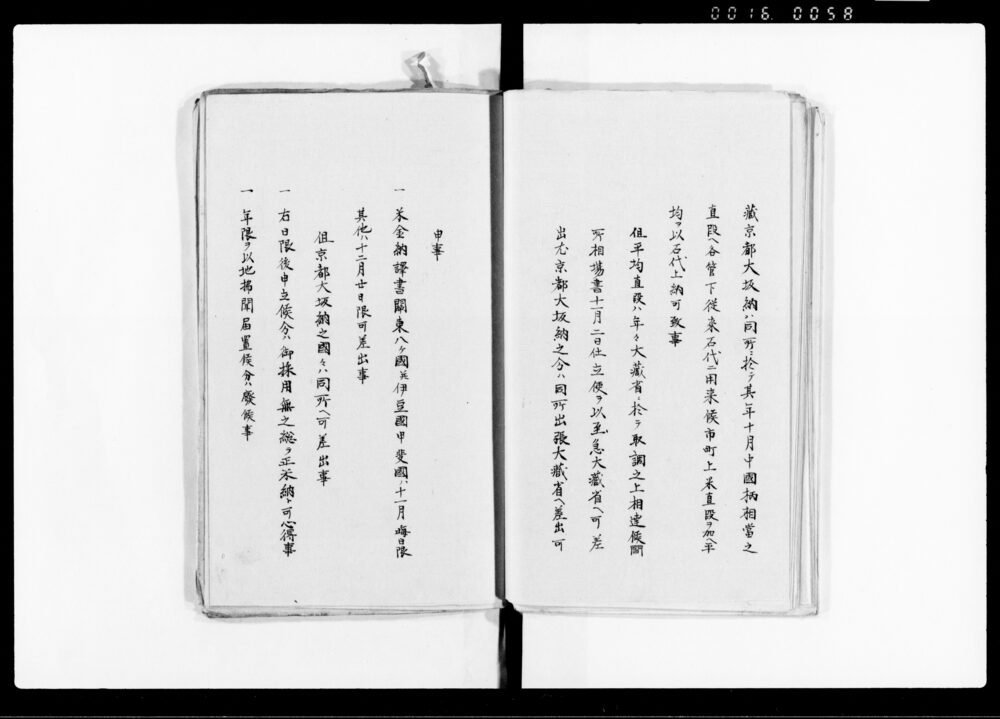 0016 0058
藏京都大坂納ハ同所ニ於テ其年十月中國柄相當之
直段ヘ各管下従来石代ニ用来候市町上米直段ヲ加ヘ平
均ヲ以石代上納可致事
但平均直段ハ年々大藏省ニ於テ取調之上相達候間
所相場書十一月二日仕立便ヲ以至急大藏省ヘ可差
出尤京都大坂納之分ハ同所出張大藏省ヘ差出可
申事
一 米金納譯書關東八ヶ國並伊豆國甲斐國ハ十一月晦日限
其他ハ十二月廿日限可差出事
但京都大坂納之國々ハ同所ヘ可差出事
一 右日限後申立候分ハ御採用無之総テ正米納ト可心得事
一 年限ヲ以地 聞届置候分ハ廢候事